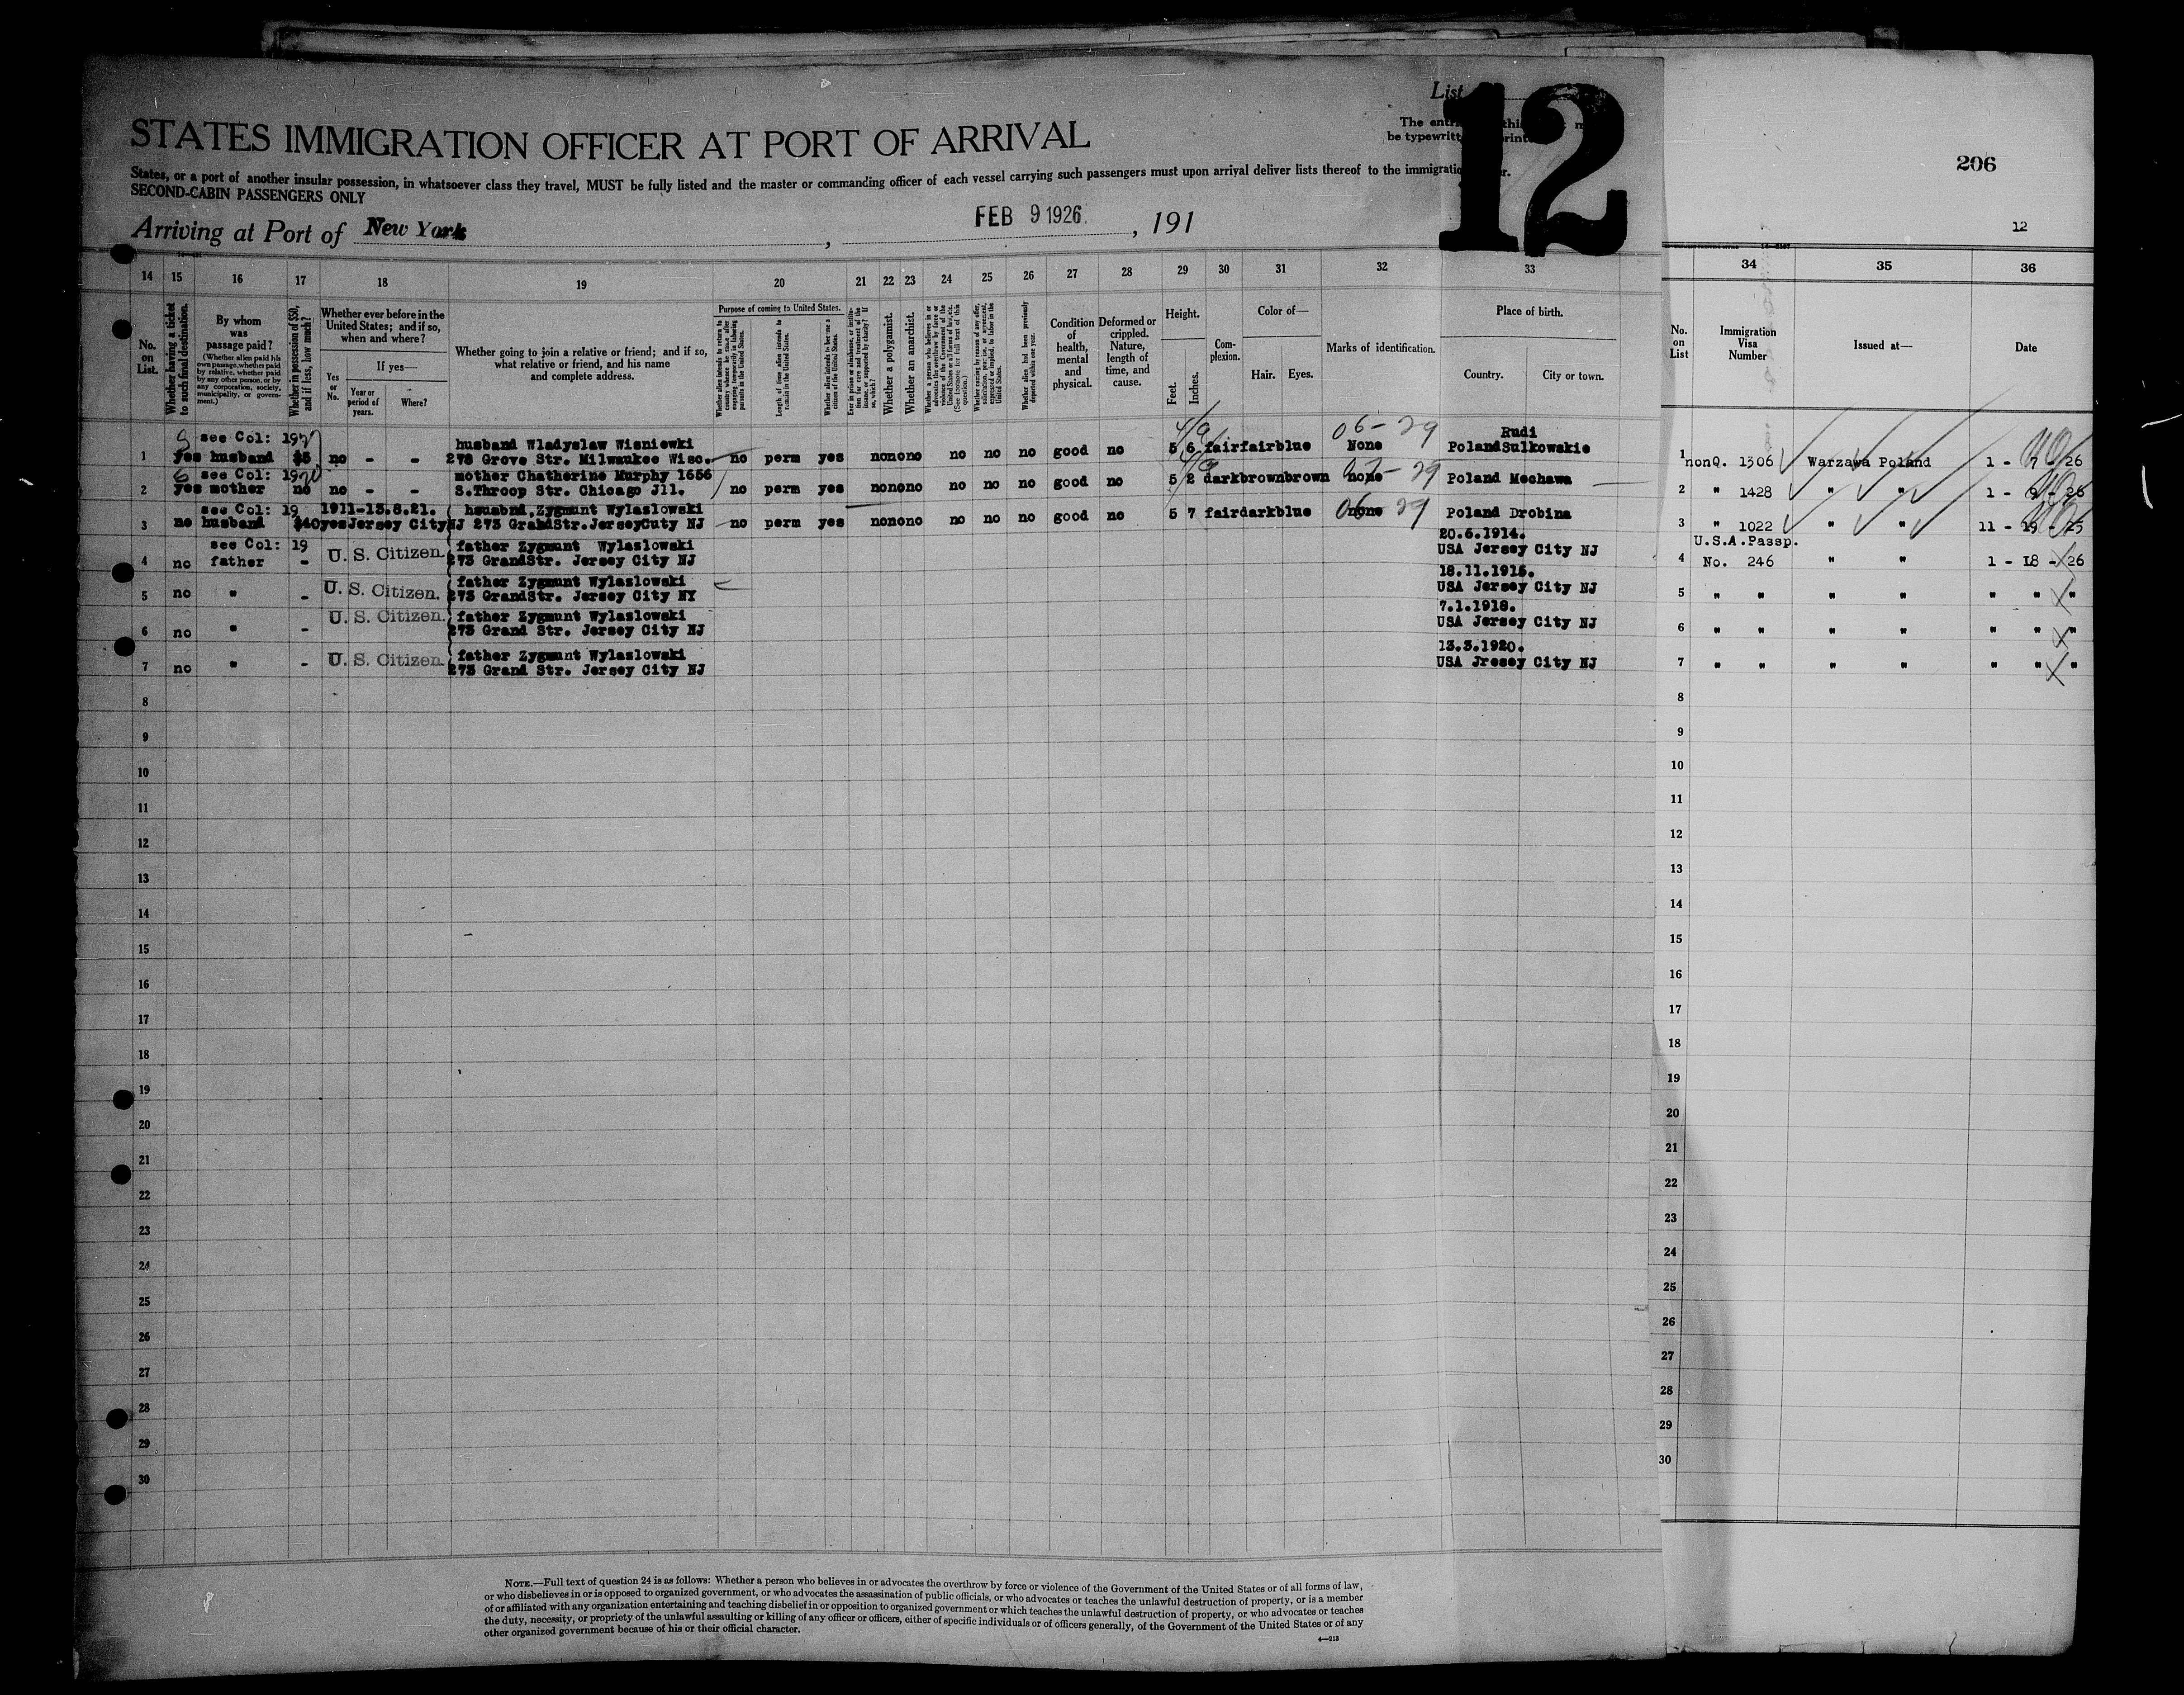 List 12
The entries on this
be typewritten or printed
STATES IMMIGRATION OFFICER AT PORT OF ARRIVAL
States, or a port of another insular possession, in whatsoever class they travel, MUST be fully listed and the master or commanding officer of each vessel carrying such passengers must upon arrival deliver lists thereof to the immigration
SECOND-CABIN PASSENGERS ONLY
Arriving at Port of New York, FEB 9 1926, 191
206
12
14 15 16 17 18 19 20 21 22 23 24 25 26 27 28 29 30 31 32 33
34 35 36
No. on List.
Whether having a ticket to such final destination.
By whom was passage paid?
(Whether alien paid his own passage, whether paid by relative, whether paid by any other person, or by any corporation, society, municipality, or government.)
Whether in possession of $50, and if less, how much?
Whether ever before in the United States; and if so, when and where?
Yes or No.
If yes—
Year or period of years.
Where?
Whether going to join a relative or friend; and if so, what relative or friend, and his name and complete address.
Purpose of coming to United States.
Length of time alien intends to remain in the United States.
Whether alien intends to become a citizen of the United States.
Whether a polygamist.
Whether an anarchist.
Whether alien had been previously deported within one year.
Condition of health, mental and physical.
Deformed or crippled. Nature, length of time, and cause.
Height.
Feet. Inches.
Complexion.
Color of—
Hair. Eyes.
Marks of identification.
Place of birth.
Country. City or town.
No. on List
Immigration Visa Number
Issued at—
Date
see Col: 19 husband Wladyslaw Wisniewki Rudi
1 yes husband $5 no - - 278 Grove Str. Milwaukee Wisc. no perm yes no no no no no no good no 5 6 fair fair blue None Poland Sulkowskie
1 nonQ. 1306 Warzawa Poland 1 - 7 - 26
see Col: 19 mother Chatherine Murphy 1656
2 yes mother no no - - S.Throop Str. Chicago Jll. no perm yes no no no no no no good no 5 2 dark brown brown none Poland Mochawa
2 " 1428 " " 1 - 9 - 26
see Col: 19 1911-13.8.21. hsuabnd,Zygmunt Wylaslowski
3 no husband $40 yes Jersey City NJ 273 GrandStr.JerseyCuty NJ no perm yes no no no no no no good no 5 7 fair dark blue none Poland Drobina
3 " 1022 " " 11 - 19 - 25
see Col: 19 father Zygmunt Wylaslowski 20.6.1914.
4 no father - U. S. Citizen. 273 GrandStr. Jersey City NJ USA Jersey City NJ
U.S.A.Passp.
4 No. 246 " " 1 - 18 - 26
father Zygmunt Wylaslowski 18.11.1915.
5 no " - U. S. Citizen. 273 GrandStr. Jersey City NY USA Jersey City NJ
5 " " " " " " "
father Zygmunt Wylaslowski 7.1.1918.
6 no " - U. S. Citizen. 273 Grand Str. Jersey City NJ USA Jersey City NJ
6 " " " " " " "
father Zygmunt Wylaslowski 13.3.1920.
7 no " - U. S. Citizen. 273 Grand Str. Jersey City NJ USA Jresey City NJ
7 " " " " " " "
8 8
9 9
10 10
11 11
12 12
13 13
14 14
15 15
16 16
17 17
18 18
19 19
20 20
21 21
22 22
23 23
24 24
25 25
26 26
27 27
28 28
29 29
30 30
NOTE.—Full text of question 24 is as follows: Whether a person who believes in or advocates the overthrow by force or violence of the Government of the United States or of all forms of law,
or who disbelieves in or is opposed to organized government, or who advocates the assassination of public officials, or who advocates or teaches the unlawful destruction of property, or is a member
of or affiliated with any organization entertaining and teaching disbelief in or opposition to organized government or which teaches the unlawful destruction of property, or who advocates or teaches
the duty, necessity, or propriety of the unlawful assaulting or killing of any officer or officers, either of specific individuals or of officers generally, of the Government of the United States or of any
other organized government because of his or their official character.
4—213